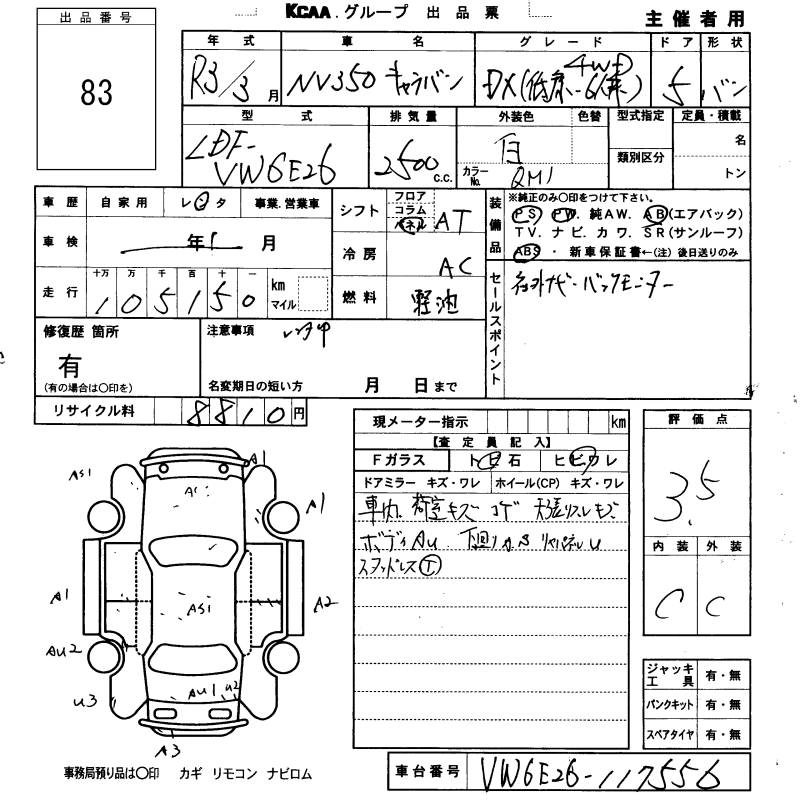 KCAA グループ 出品票
主催者用
出品番号
83
年式 車名 グレード ドア 形状
R3/3月 NV350 キャラバン DX(低床 6人乗) 4WD 5 バン
型式 排気量 外装色 色替 型式指定 定員・積載
LDF-VW6E26 2500 c.c. 白 名
カラーNo. QM1 類別区分 トン
車歴 自家用 レンタ 事業.営業車
シフト フロア コラム パネル AT
装備品 ※純正のみ○印をつけて下さい。
PS PW. 純AW. AB(エアバック)
TV. ナビ. カワ. SR(サンルーフ)
ABS ・ 新車保証書←(注)後日送りのみ
車検 年 月
冷房 AC
走行 十万 万 千 百 十 一 km マイル
105150
燃料 軽油
セールスポイント
社外ナビ・バックモニター
修復歴 箇所
有
(有の場合は○印を)
注意事項 レンタ中
名変期日の短い方 月 日まで
リサイクル料 8810円
現メーター指示 km
【査定員記入】
Fガラス トビ石 ヒビワレ
ドアミラー キズ・ワレ ホイール(CP) キズ・ワレ
車内 荷室キズ コゲ 天張リスレキズ
ボディAU 下回りサ.S リヤパネルU
スタッドレスⓉ
評価点
3.5
内装 外装
C C
ジャッキ工具 有・無
パンクキット 有・無
スペアタイヤ 有・無
AS1
A1
A1
A1
AS1
A1
A2
AU2
AU1
U2
U3
A3
事務局預り品は○印 カギ リモコン ナビロム
車台番号 VW6E26-117556